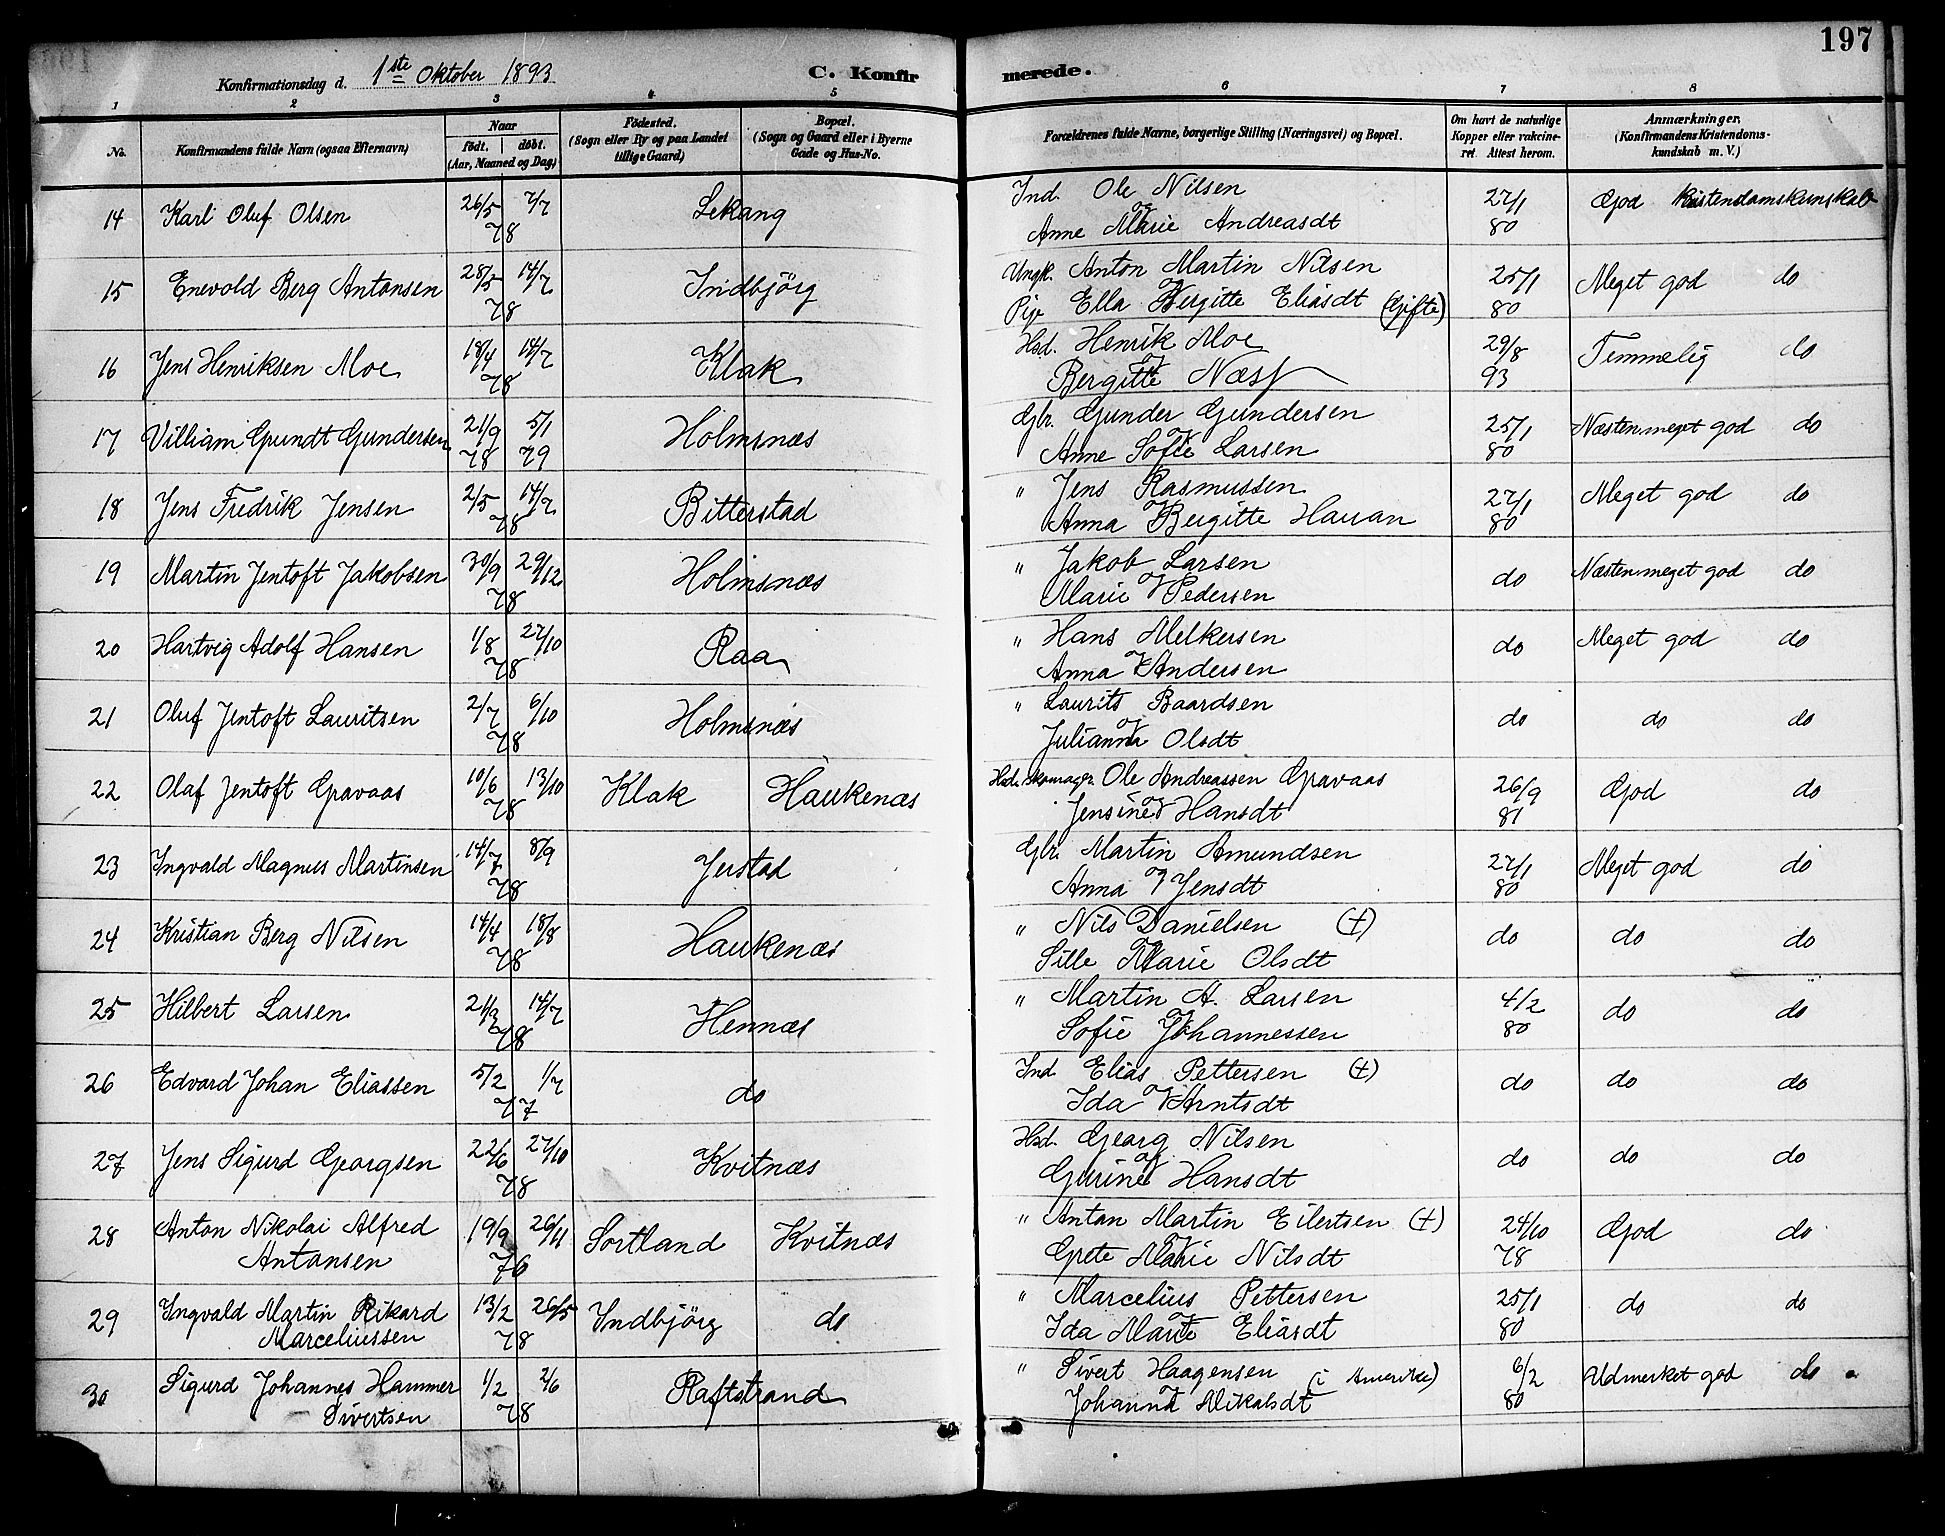 197
Konfirmationsdag d. 1ste Oktober 1893 C. Konfirmerede.
1 2 3 4 5 6 7 8
No. Konfirmandens fulde Navn (ogsaa Efternavn) Naar født. døbt. (Aar, Maaned og Dag) Fødested. (Sogn eller By og paa Landet tillige Gaard) Bopæl. (Sogn og Gaard eller i Byerne Gade og Hus-No. Forældrenes fulde Navne, borgerlige Stilling (Næringsvei) og Bopæl. Om havt de naturlige Kopper eller vakcineret. Attest herom. Anmærkninger, (Konfirmandens Kristendomskundskab m. V.)
14 Karl Oluf Olsen 26/5 7/7 78 Lekang Ind. Ole Nilsen og Anne Marie Andreasdt 27/1 80 God Kristendomskunskab
15 Enevold Berg Antonsen 28/5 14/7 78 Indbjörg Ungk. Anton Martin Nilsen og Pige Ella Bergitte Eliasdt (Gifte) 25/1 80 Meget god do
16 Jens Henriksen Moe 18/4 14/7 78 Klak Hsd. Henrik Moe og Bergitte Næss 29/8 93 Temmelig do
17 Villiam Grundt Gundersen 21/9 78 5/1 79 Holmsnæs Gbr. Gunder Gundersen og Anne Sofie Larsen 25/1 80 Næsten meget god do
18 Jens Fredrik Jensen 2/5 14/7 78 Bitterstad " Jens Rasmussen og Anna Bergitte Hauan 27/1 80 Meget god do
19 Martin Jentoft Jakobsen 30/9 29/12 78 Holmsnæs " Jakob Larsen og Marie Pedersen do Næsten meget god do
20 Hartvig Adolf Hansen 1/8 27/10 78 Raa " Hans Melkersen og Anna Andersen do Meget god do
21 Oluf Jentoft Lauritsen 2/7 6/10 78 Holmsnæs " Laurits Baardsen og Julianna Olsdt do do do
22 Olaf Jentoft Gravaas 10/6 13/10 78 Klak Haukenæs Hsd. skomager Ole Andreassen Gravaas og Jensine Hansdt 26/9 81 God do
23 Ingvald Magnus Martinsen 14/7 8/9 78 Jerstad Gbr. Martin Amundsen og Anna Jensdt 27/1 80 Meget god do
24 Kristian Berg Nilsen 14/4 18/8 78 Haukenæs " Nils Danielsen (+) og Sille Marie Olsdt do do do
25 Hilbert Larsen 21/3 14/7 78 Hennæs " Martin A. Larsen og Sofie Johannessen 4/2 80 do do
26 Edvard Johan Eliassen 5/2 1/7 77 do Ind Elias Pettersen (+) og Ida Arntsdt do do do
27 Jens Sigurd Georgsen 22/6 27/10 78 Kvitnæs Hsd. Georg Nilsen og Gurine Hansdt do do do
28 Anton Nikolai Alfred Antonsen 19/9 26/11 76 Sortland Kvitnæs " Anton Martin Eilertsen (+) og Grete Marie Nilsdt 24/10 78 God do
29 Ingvald Martin Rikard Marceliussen 13/2 26/5 78 Indbjörg do " Marcelius Pettersen og Ida Marie Eliasdt 25/1 80 do do
30 Sigurd Johannes Hammer Sivertsen 1/2 2/6 78 Raftstrand " Sivert Haagensen (i Amerika) og Johanna Nikolsdt 6/2 80 Udmerket god do